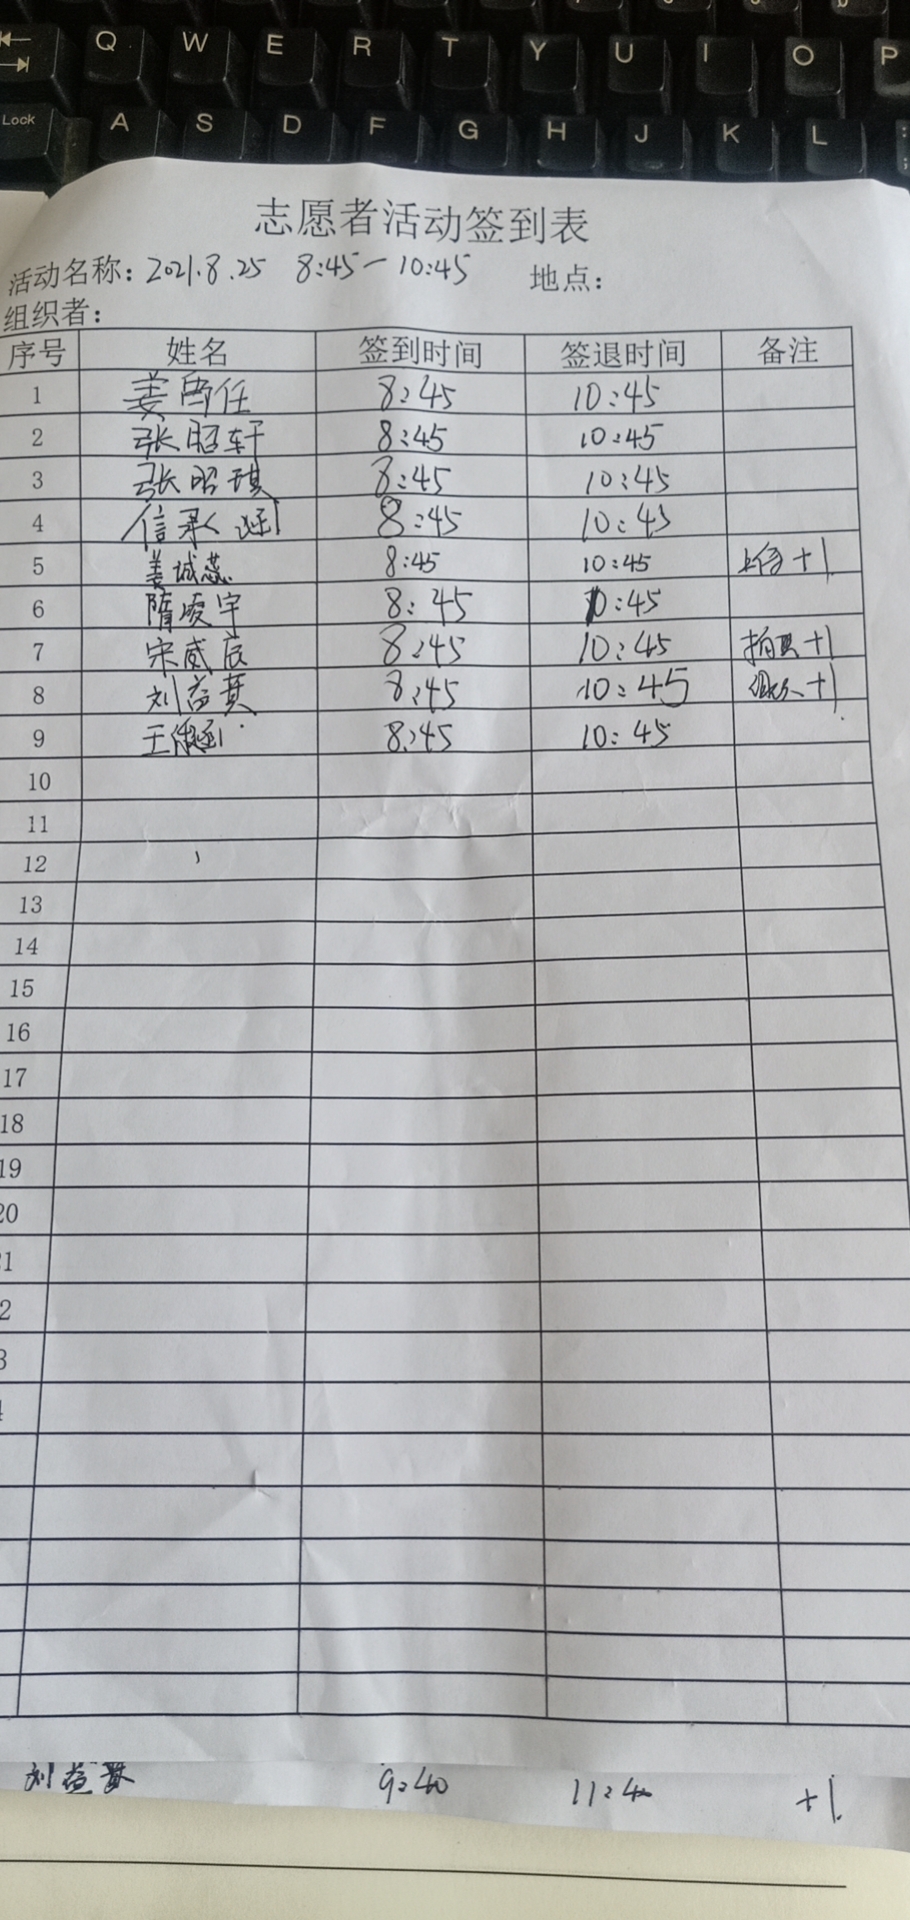 Q W E R T Y U I O P
Lock A S D F G H J K L
志愿者活动签到表
活动名称：2021.8.25 8:45-10:45 地点：
组织者：
序号 姓名 签到时间 签退时间 备注
1 姜 任 8:45 10:45
2 张昭轩 8:45 10:45
3 张昭琪 8:45 10:45
4 信承涵 8:45 10:45
5 姜城蕊 8:45 10:45 +1
6 隋凌宇 8:45 10:45
7 宋威辰 8:45 10:45 拍照+1
8 刘益 8:45 10:45 组织+1
9 王 涵 8:45 10:45
10
11
12
13
14
15
16
17
18
19
20
刘益 9:40 11:40 +1